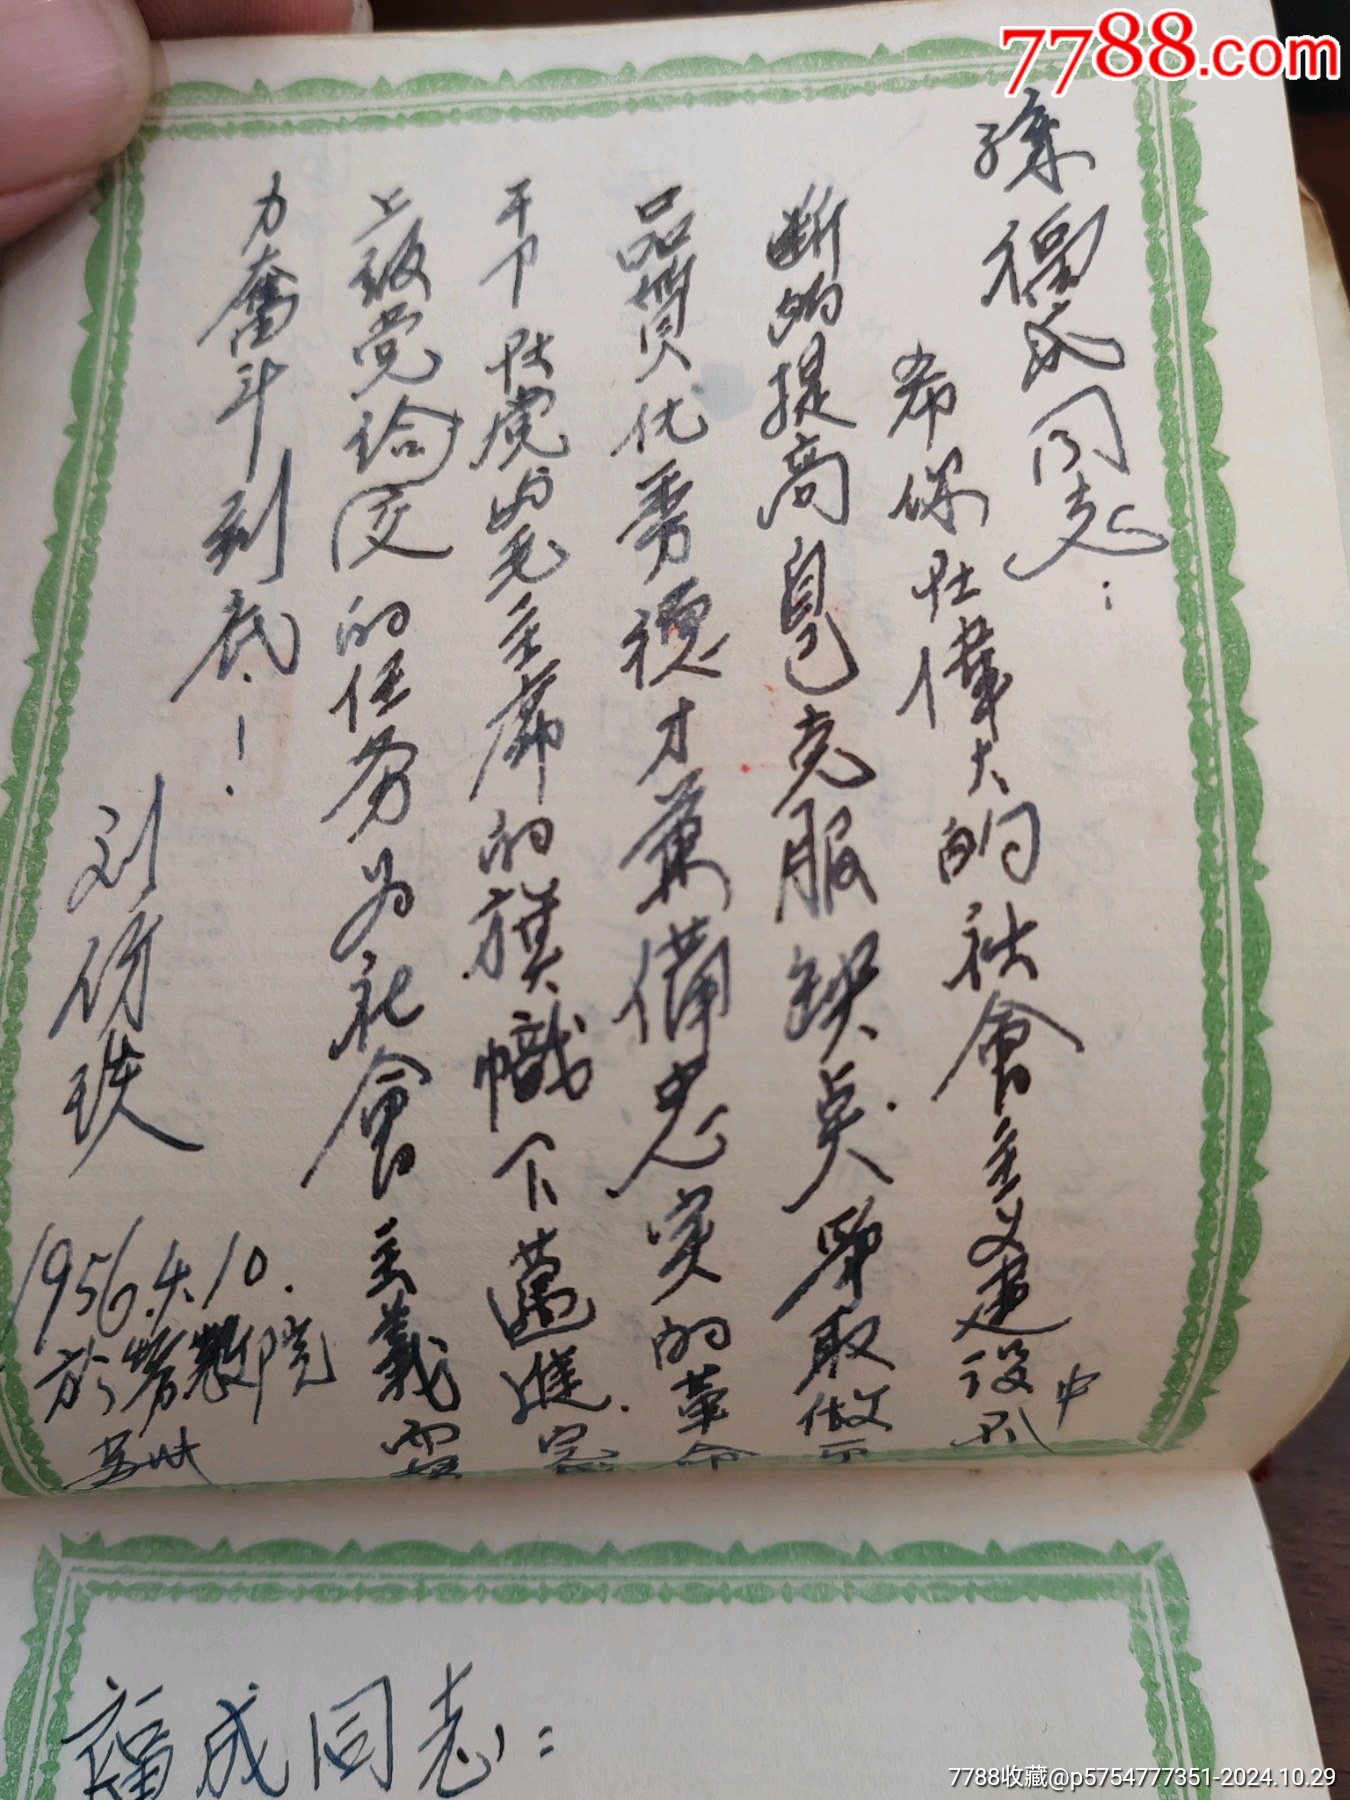 7788.com
孫福成同志:
希你在偉大的社會主义建设中不
断的提高自己克服缺点.爭取做
品質优秀德才兼備忠实的革命
干卩在党的毛主席的旗幟下邁進.完
上級党给交的任务为社會主義
力奮斗到底.!
刘
1956.4.10.
於
福成同志:
7788收藏@p5754777351-2024.10.29